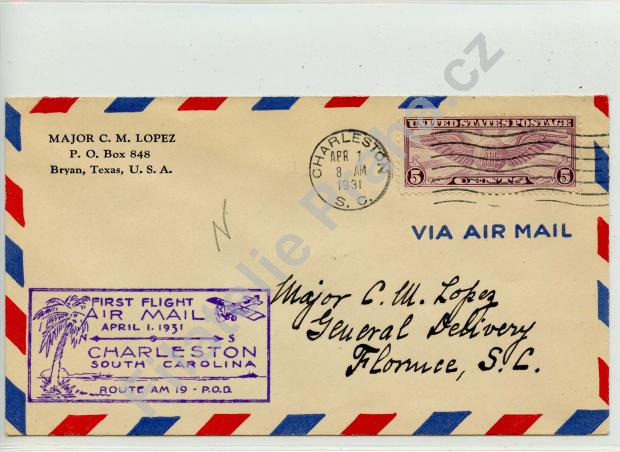 MAJOR C. M. LOPEZ
P. O. Box 848
Bryan, Texas, U. S. A.
CHARLESTON
APR 1
8 AM
1931
S. C.
UNITED STATES POSTAGE
5 CENTS 5
VIA AIR MAIL
N
FIRST FLIGHT
AIR MAIL
APRIL 1. 1931
S
CHARLESTON
SOUTH CAROLINA
ROUTE AM 19 - P.O.D.
Major C. M. Lopez
General Delivery
Florence, S. C.
Filatelie Praha.cz